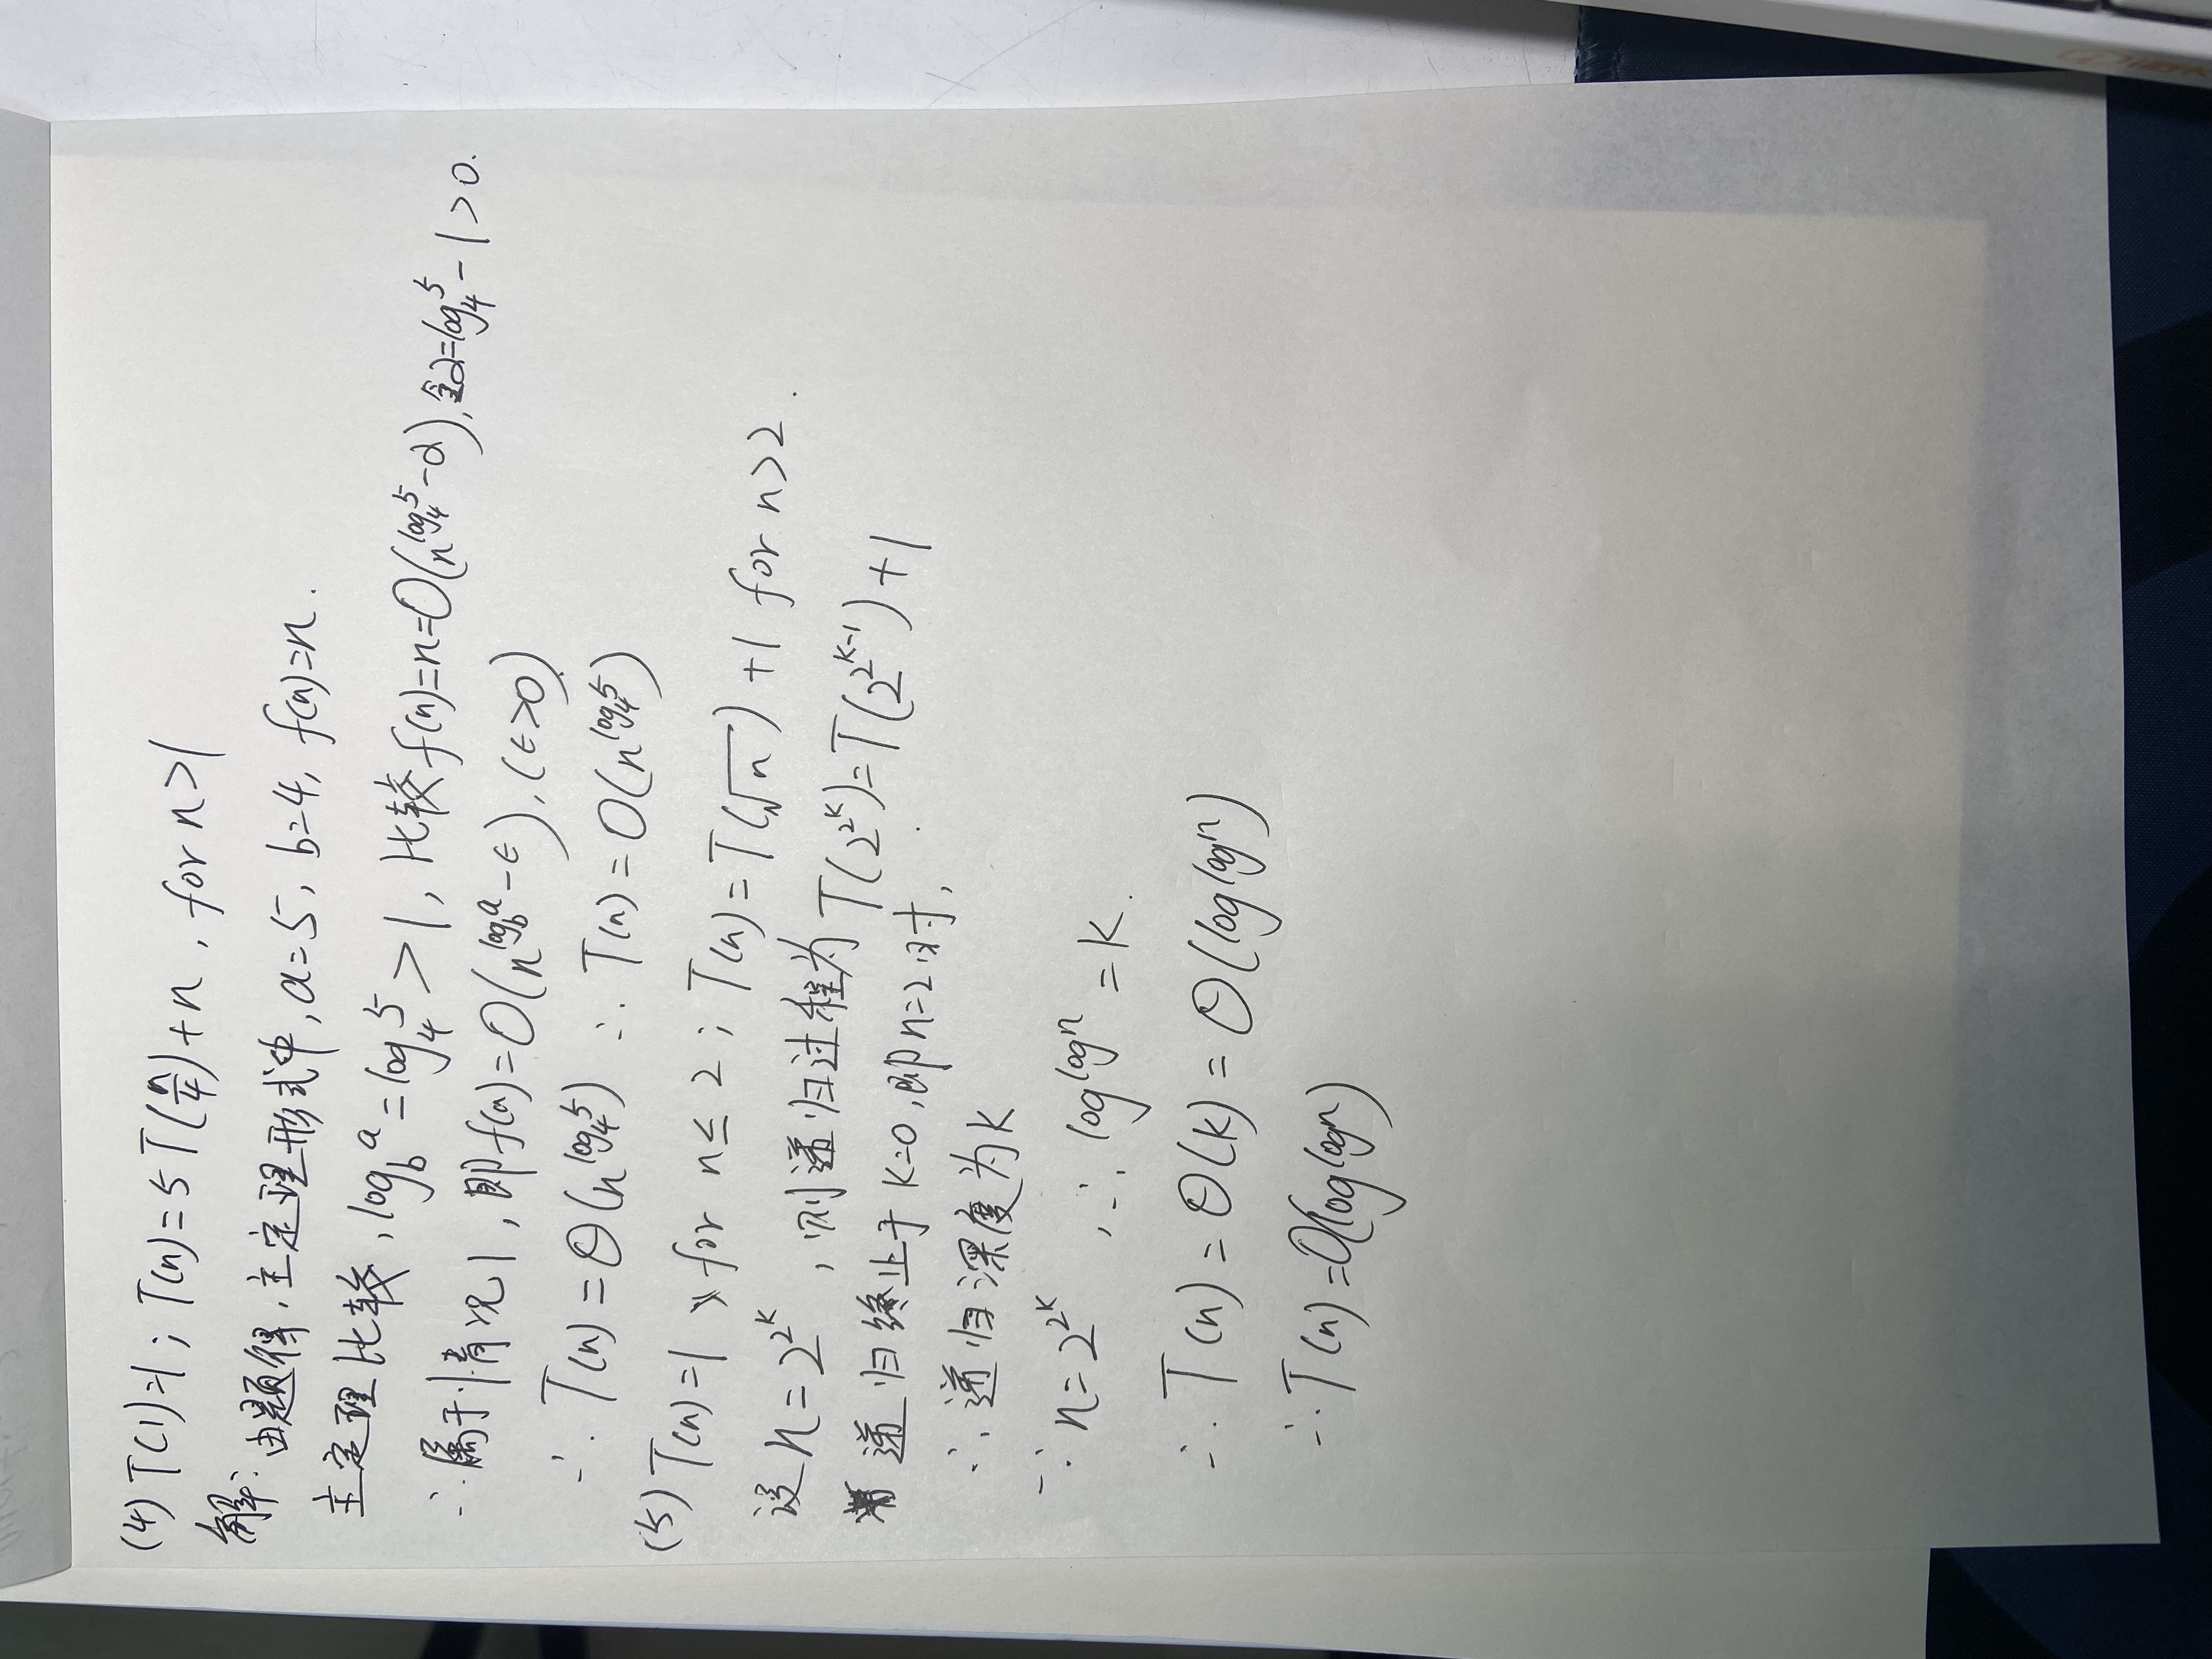 (4) T(1)=1; T(n)=5T(n/4)+n, for n>1
解: 由题得, 主定理形式中, a=5, b=4, f(n)=n.
主定理比较, log_b^a = log_4^5 > 1, 比较 f(n)=n=O(n^{log_4^5-2}), 2=log_4^5-1>0.
∴属于情况1, 即f(n)=O(n^{log_b^a-ϵ}), (ϵ>0)
∴ T(n)=Θ(n^{log_4^5}) ∴ T(n)=O(n^{log_4^5})
(5) T(n)=1 for n≤2; T(n)=T(√n)+1 for n>2.
设 n=2^{2^k}, 则递归过程为 T(2^{2^k})=T(2^{2^{k-1}})+1
递归终止于 k=0, 即n=2时,
∴递归深度为k
∵ n=2^{2^k}, ∴ log log n = k.
∴ T(n)=Θ(k)=Θ(log log n)
∴ T(n)=O(log log n)